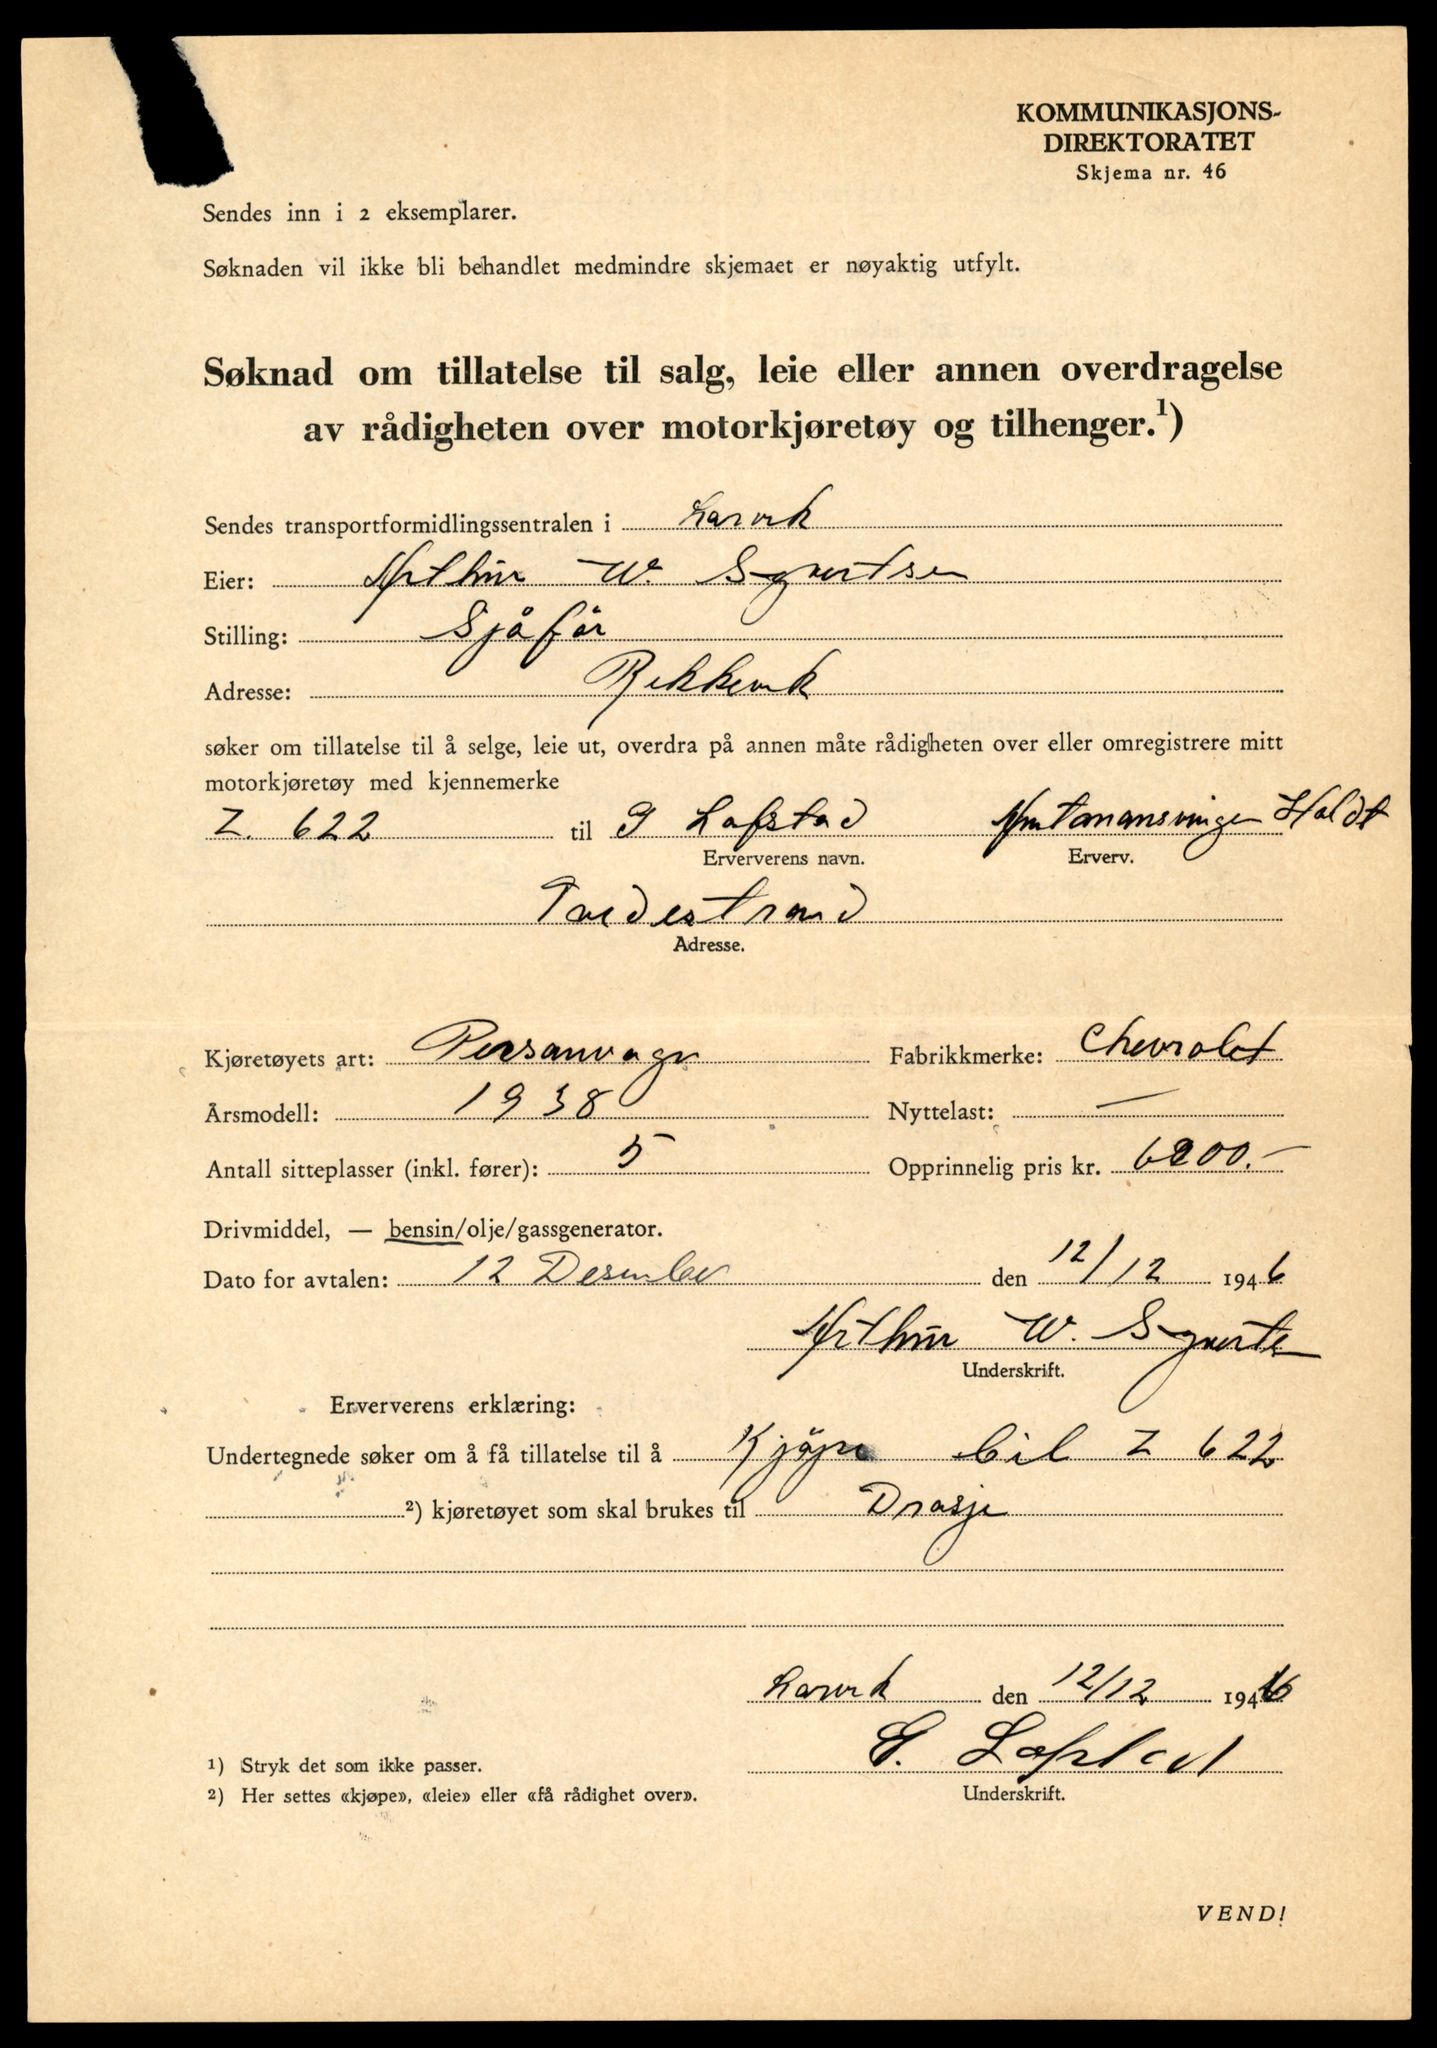 KOMMUNIKASJONS-
DIREKTORATET
Skjema nr. 46
Sendes inn i 2 eksemplarer.
Søknaden vil ikke bli behandlet medmindre skjemaet er nøyaktig utfylt.
Søknad om tillatelse til salg, leie eller annen overdragelse
av rådigheten over motorkjøretøy og tilhenger.¹)
Sendes transportformidlingssentralen i Larvik
Eier: Arthur W. Syvertsen
Stilling: Sjåfør
Adresse: Rekkevik
søker om tillatelse til å selge, leie ut, overdra på annen måte rådigheten over eller omregistrere mitt
motorkjøretøy med kjennemerke
Z. 622 til G Lofstad
Erververens navn. Erverv.
Tvedestrand
Adresse.
Kjøretøyets art: Personvogn Fabrikkmerke: Chevrolet
Årsmodell: 1938 Nyttelast: —
Antall sitteplasser (inkl. fører): 5 Opprinnelig pris kr. 6200.-
Drivmiddel, — bensin/olje/gassgenerator.
Dato for avtalen: 12 Desember den 12/12 1946
Arthur W. Syvertsen
Underskrift.
Erververens erklæring:
Undertegnede søker om å få tillatelse til å Kjöpe bil Z 622
²) kjøretøyet som skal brukes til Drosje
Larvik den 12/12 1946
G. Lofstad
¹) Stryk det som ikke passer.
²) Her settes «kjøpe», «leie» eller «få rådighet over».
Underskrift.
VEND!